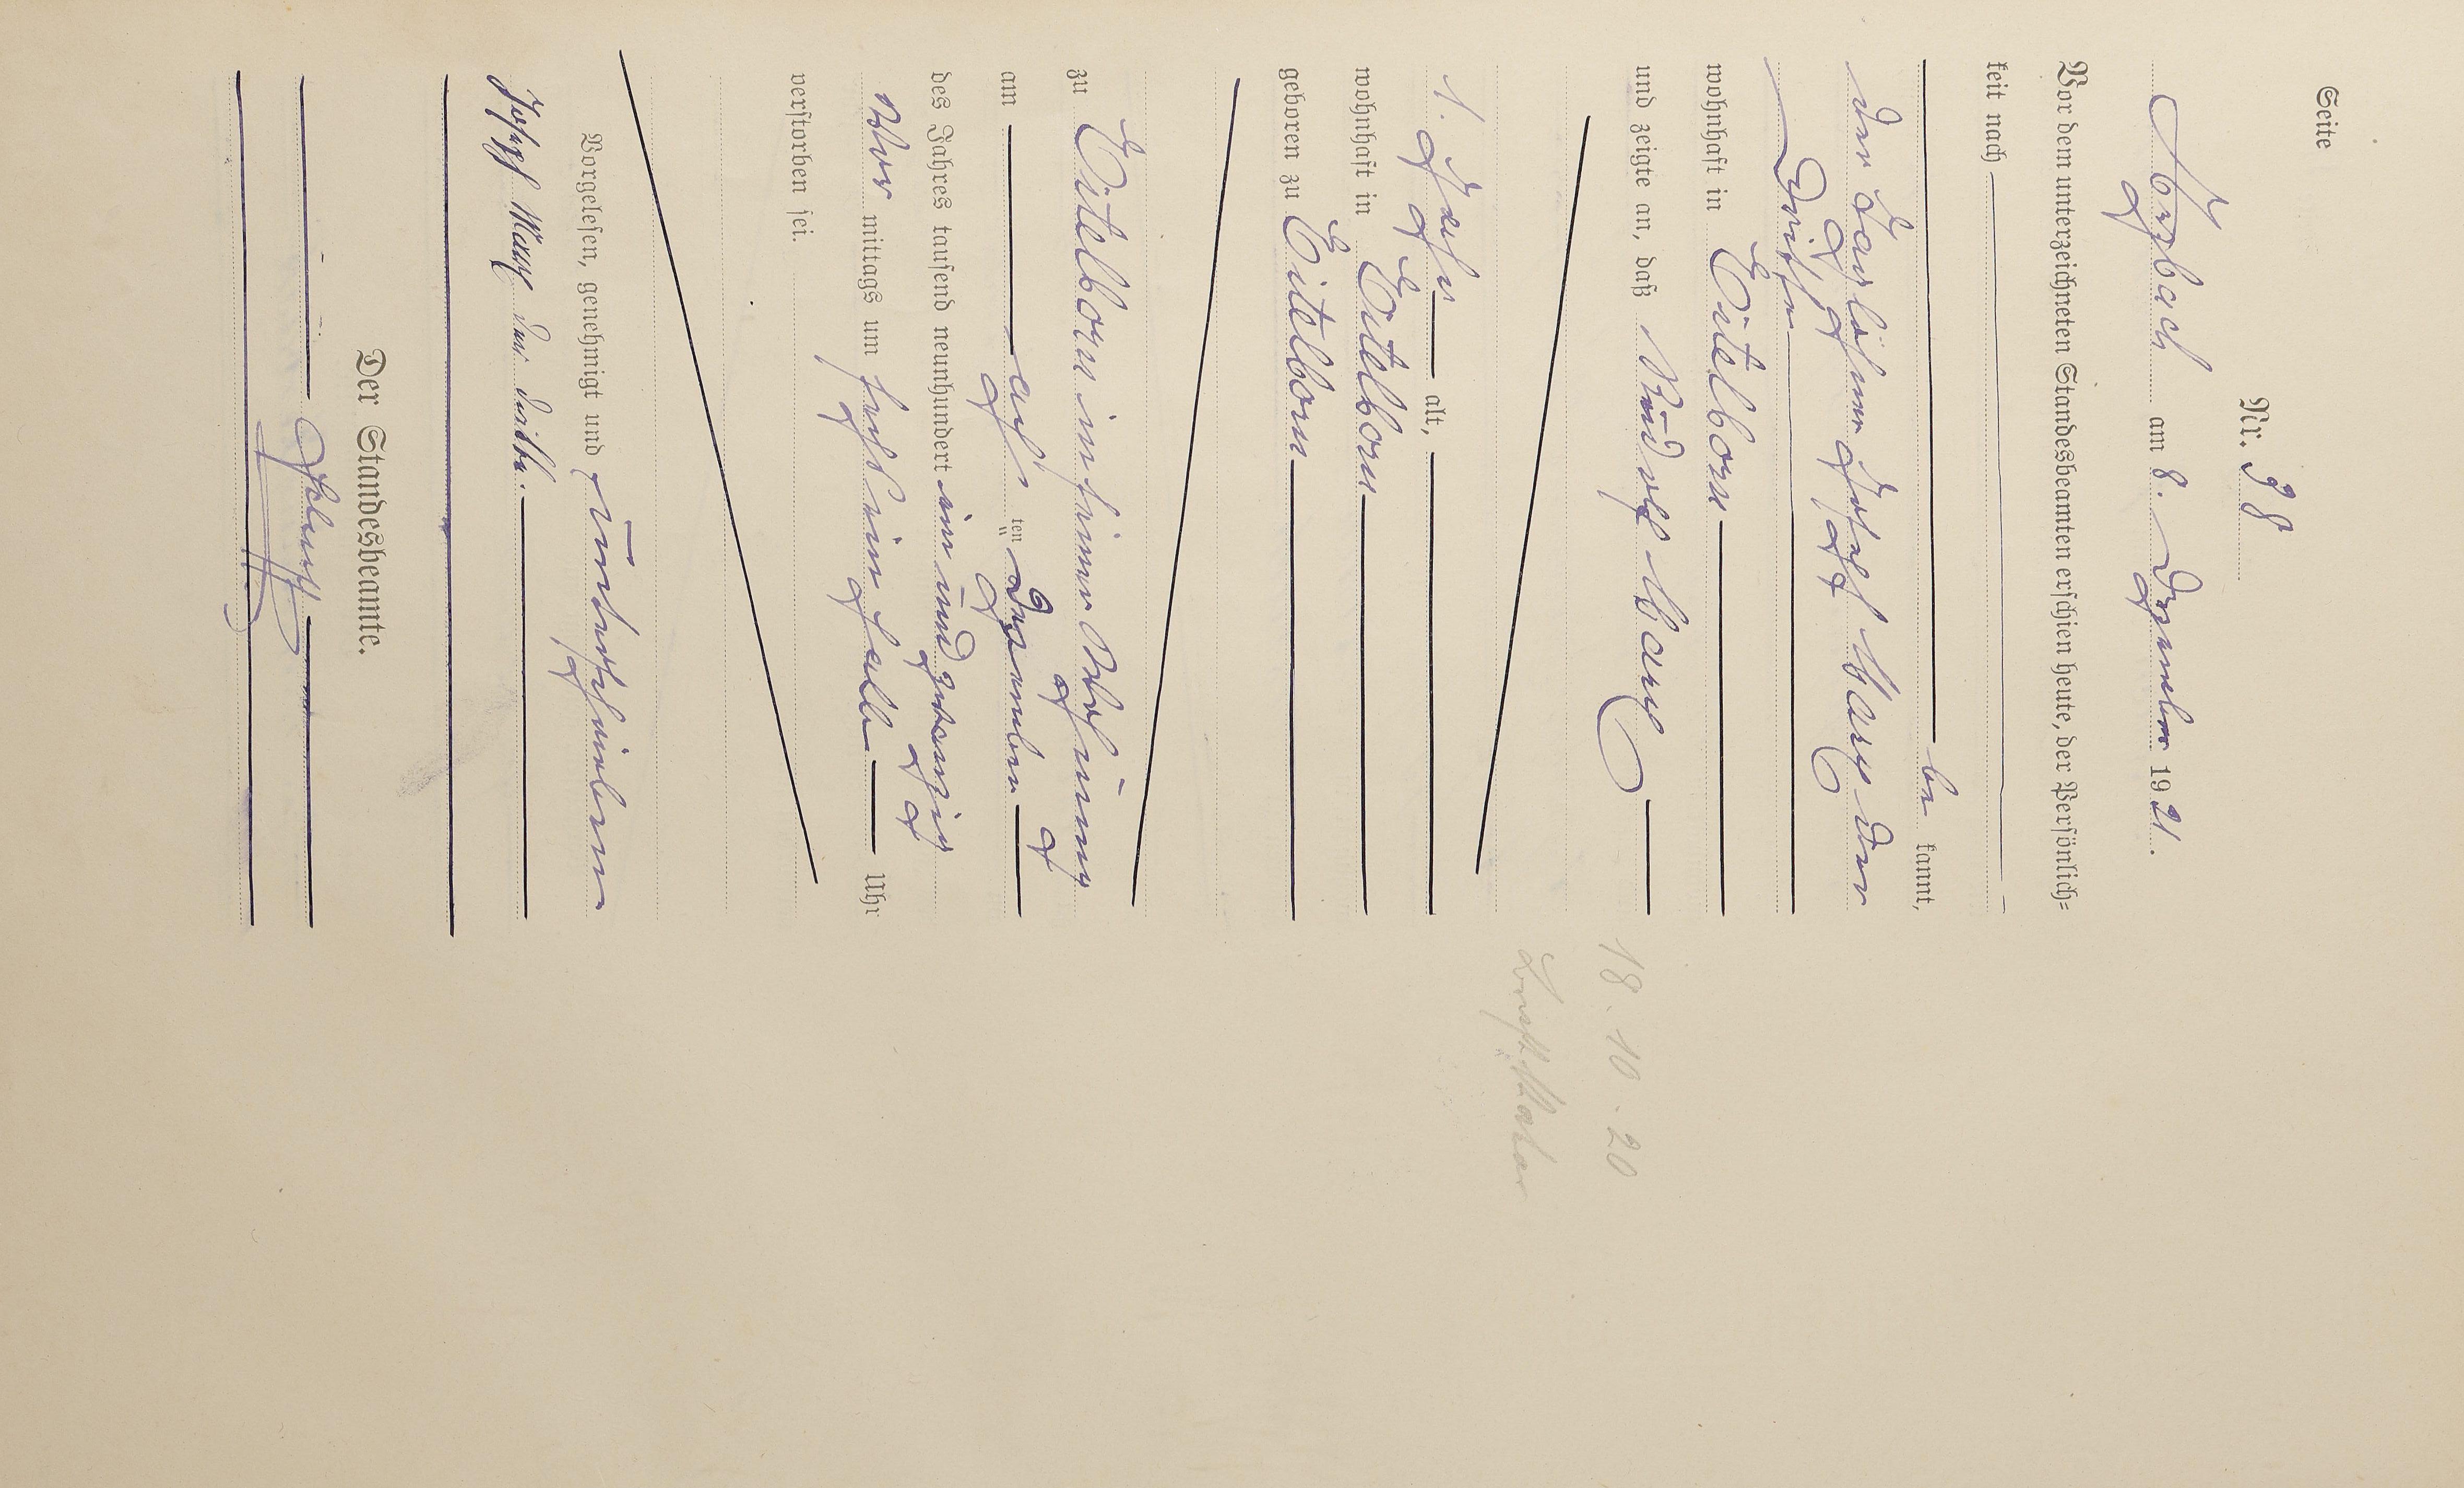 Seite
Nr. 98
Arzbach am 8. Dezember 1921.
Vor dem unterzeichneten Standesbeamten erschien heute, der Persönlich-
keit nach
be kannt,
der Taglöhner Josef Marx der
Dritte
wohnhaft in Eitelborn
und zeigte an, daß Rudolf Marx
18.10.20
1. Jahr alt,
wohnhaft in Eitelborn
geboren zu Eitelborn
zu Eitelborn in seiner Wohnung
am acht ten Dezember
des Jahres tausend neunhundert ein und zwanzig
Vor mittags um sechs ein halb Uhr
verstorben sei.
Vorgelesen, genehmigt und unterschrieben
Josef Marx der dritte.
Der Standesbeamte.